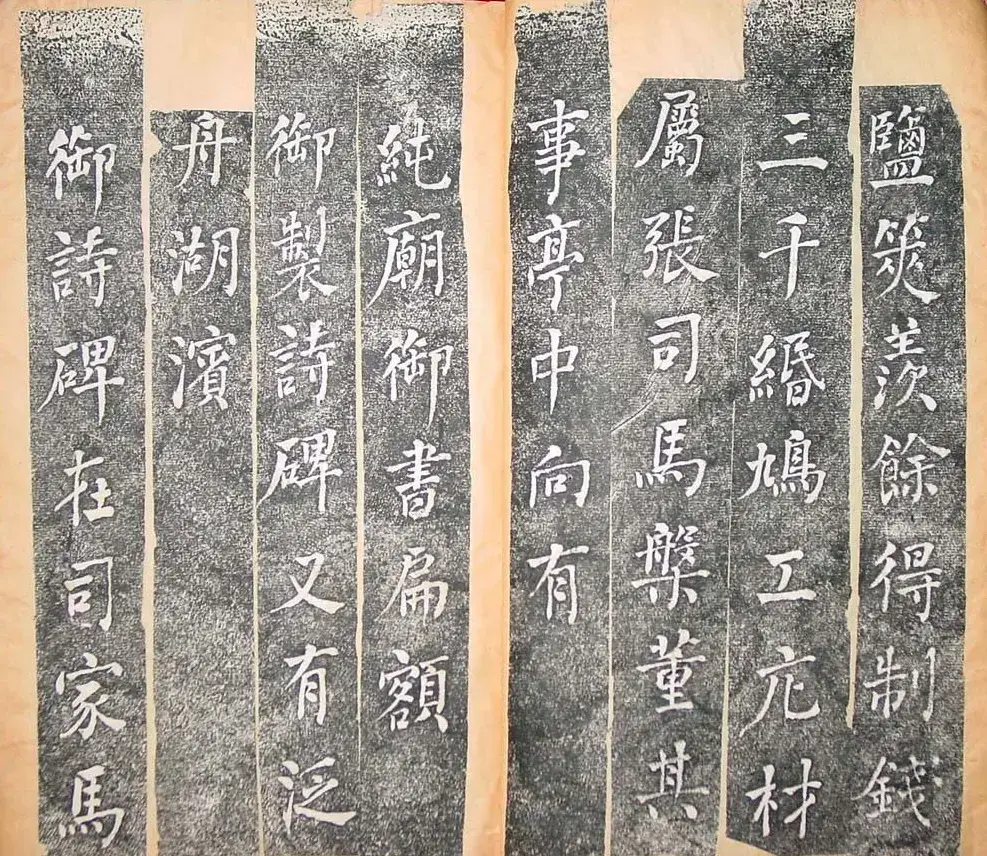 鹽筴羨餘得制錢
三千緡鳩工庀材
屬張司馬槃董其
事亭中向有
純廟御書扁額
御製詩碑又有泛
舟湖濱
御詩碑在司家馬